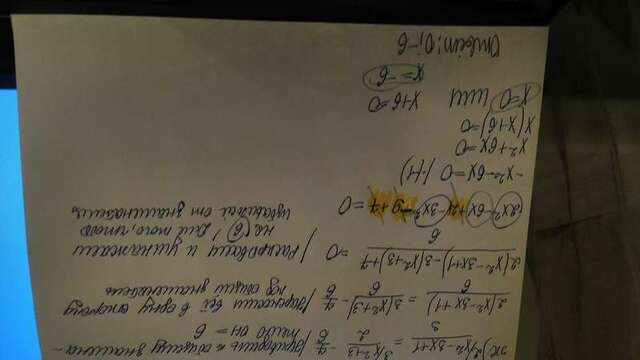 ж) 2/ x²-3x+1 / 3 = 3/ x²+3 / 2 - 7/6 / Приводим к общему знамена-
телю он = 6
2(x²-3x+1)/6 = 3(x²+3)/6 - 7/6 / Переносим всё в одну сторону
под общий знаменатель
2(x²-3x+1)-3(x²+3)+7 / 6 = 0 / Раскроваем и умнажаем
на (6)! Для того, чтобы
избавиться от знаменателя,
2x²-6x+2-3x²-9+7=0
-x²-6x=0 /·(-1)
x²+6x=0
x(x+6)=0
x=0 или x+6=0
x=-6
Ответ: 0; -6